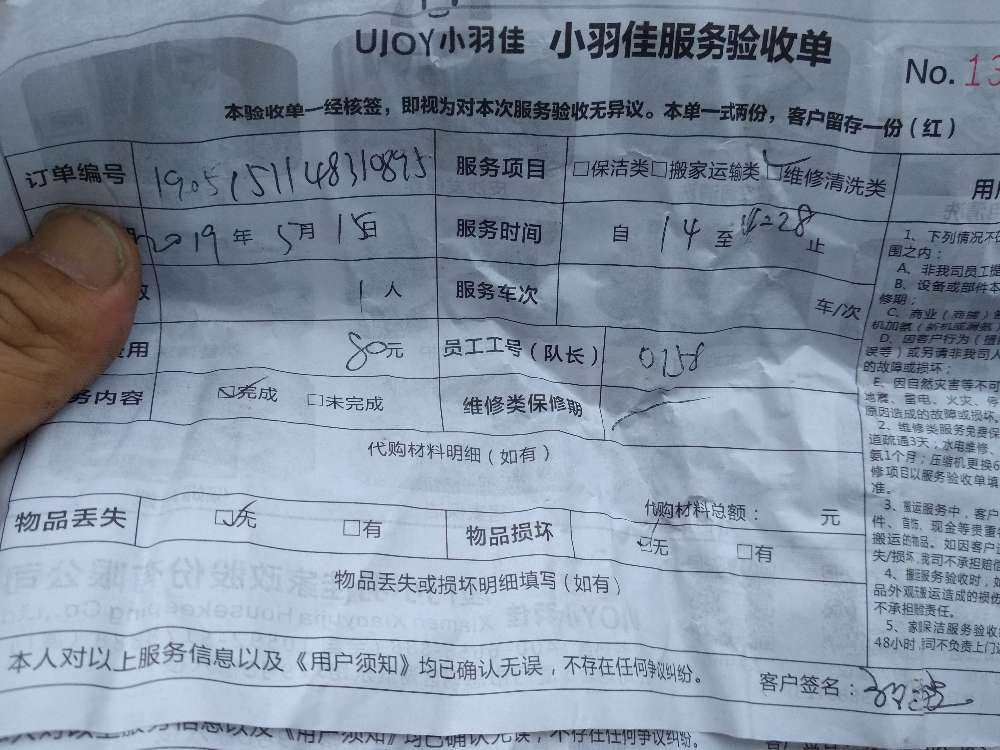 UJOY小羽佳 小羽佳服务验收单
No. 13
本验收单一经核签，即视为对本次服务验收无异议。本单一式两份，客户留存一份（红）
订单编号 1905151148310895 服务项目 □保洁类□搬家运输类□维修清洗类
2019年5月15日 服务时间 自 14 至 28止
1人 服务车次 车/次
用 80元 员工工号（队长） 0758
务内容 ☑完成 □未完成 维修类保修期
代购材料明细（如有）
代购材料总额： 元
物品丢失 ☑无 □有 物品损坏 ☑无 □有
物品丢失或损坏明细填写（如有）
本人对以上服务信息以及《用户须知》均已确认无误，不存在任何争议纠纷。
客户签名：
用户
1、下列情况不
围之内：
A、非我司员工提
B、设备或部件本
修期；
C、商业（商铺）
机加氨（新机或漏氨）
D、因客户行为（
误等）或另请非我司人
的故障或损坏；
E、因自然灾害等不可
地震、雷电、火灾、停
原因造成的故障或损坏
2、维修类服务免费保
道疏通3天；水电维修、
氨1个月；压缩机更换6
修项目以服务验收单填
准。
3、搬运服务中，客户
件、首饰、现金等贵重
搬运的物品。如因客户
失/损坏，我司不承担赔偿
4、搬运服务验收时，
品外观搬运造成的损伤
不承担验责任。
5、家居保洁服务验收
48小时，司不负责上门
服务信息以及《用户须知》均已确认无误，不存在任何争议纠纷。